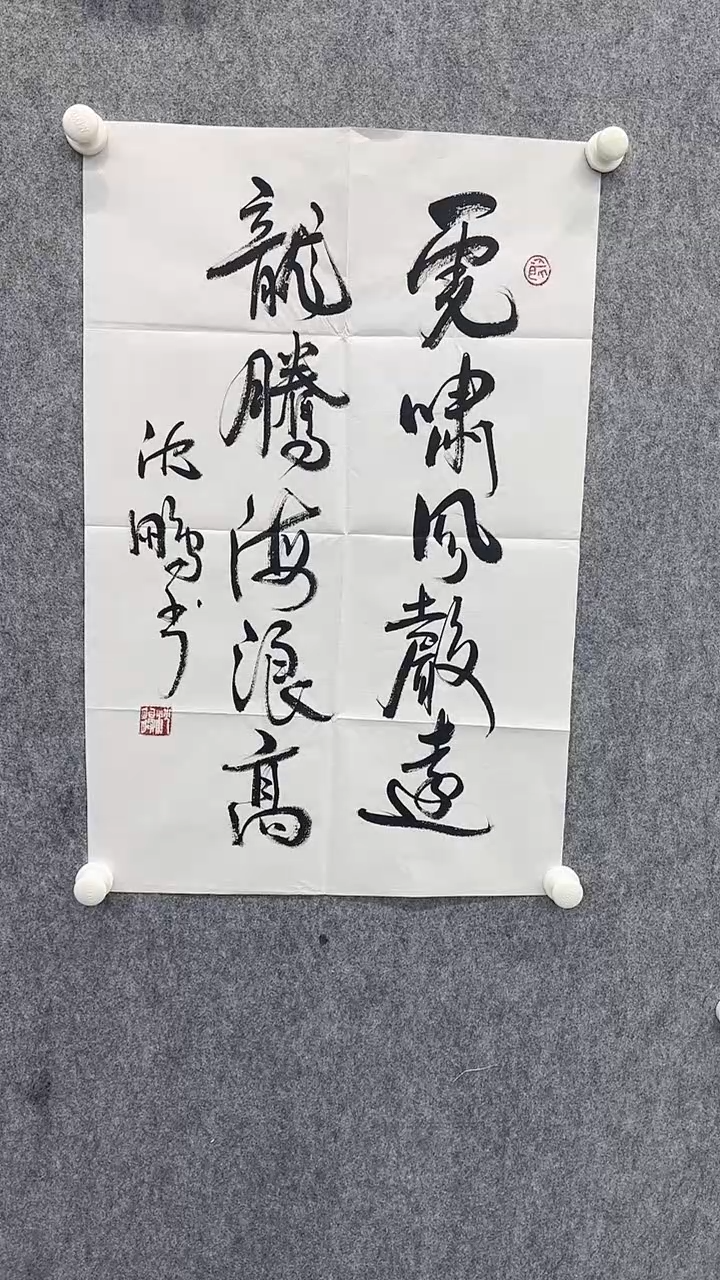 虎啸風聲遠
龍騰海浪高
沈鵬书